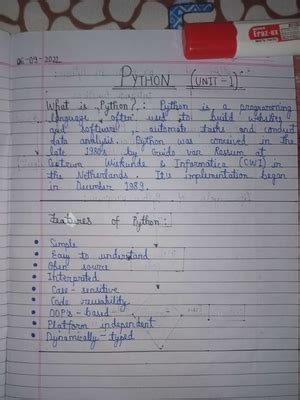 06-09-2022
PYTHON (UNIT-1)
What is Python? : Python is a programming
language often used to build websites
and software, automate tasks and conduct
data analysis. Python was conceived in the
late 1980s by Guido van Rossum at
Centrum Wiskunde & Informatica (CWI) in
the Netherlands. Its implementation began
in December 1989.
Features of Python :
Simple
Easy to understand
Open source
Interpreted
Case-sensitive
Code reusability
OOPs-based
Platform independent
Dynamically-typed